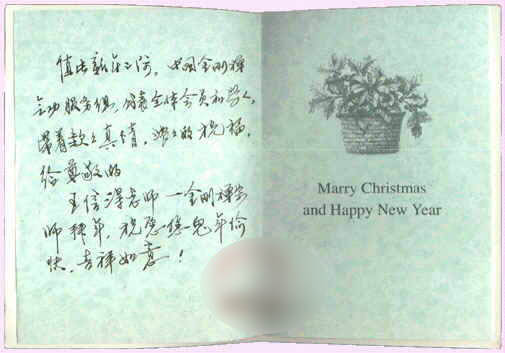 值此新年之际，中国金刚禅
功服务 全体会员和家人，
带着款々真情，的祝福，
给尊敬的
王信得老师—金刚禅宗
师拜年，祝您兔年愉
快，吉祥如意！
Marry Christmas
and Happy New Year